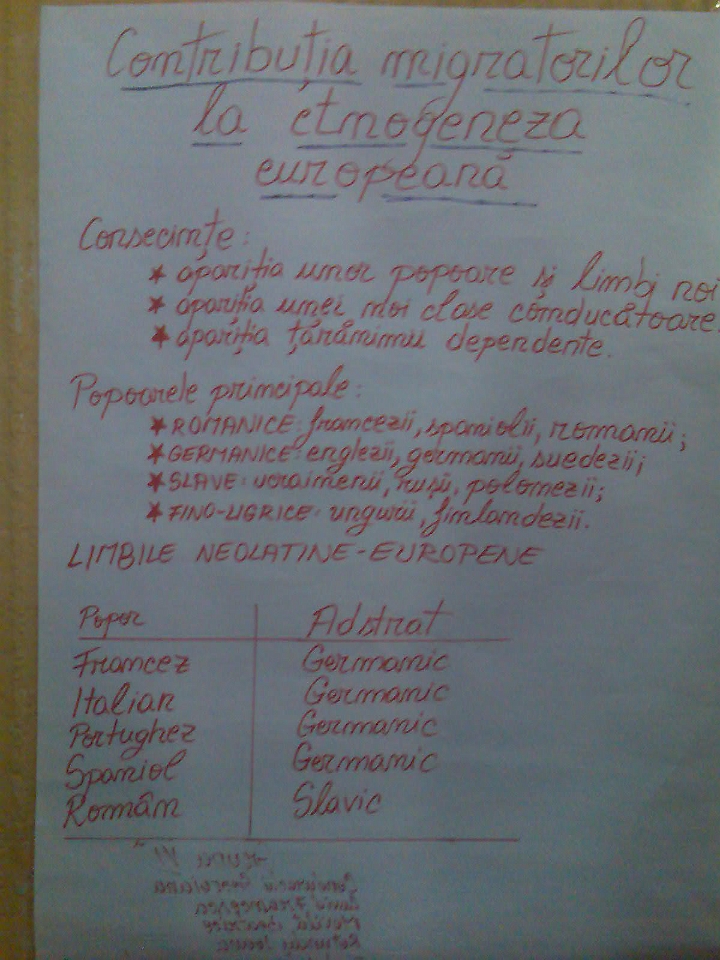 Contribuția migratorilor
la etnogeneza
europeană
Consecințe:
★ apariția unor popoare și limbi noi
★ apariția unei noi clase conducătoare
★ apariția țărănimii dependente.
Popoarele principale:
★ ROMANICE: francezii, spaniolii, romanii;
★ GERMANICE: englezii, germanii, suedezii;
★ SLAVE: ucrainenii, rușii, polonezii;
★ FINO-UGRICE: ungurii, finlandezii.
LIMBILE NEOLATINE-EUROPENE
Popor Adstrat
Francez Germanic
Italian Germanic
Portughez Germanic
Spaniol Germanic
Român Slavic
Grupa VI
Georgiana
Francesca
Beatrice
Ioana